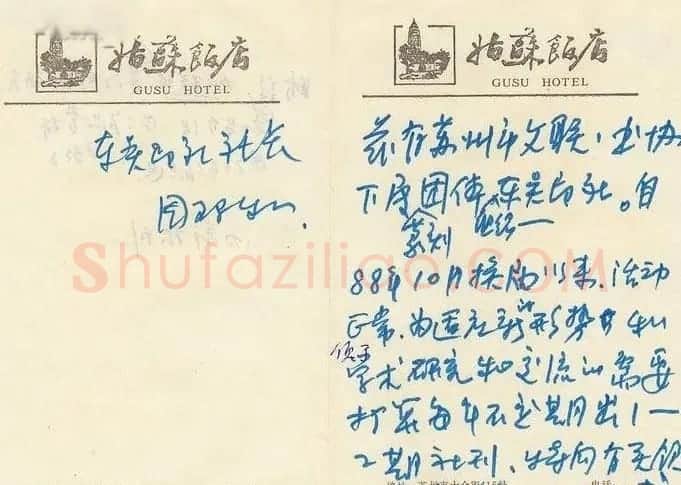 姑蘇飯店
GUSU HOTEL
东吴印社社长
姑蘇飯店
GUSU HOTEL
兹有苏州市文联、书协
下属团体东吴印社。自
篆刻
88年10月换届以来、活动
正常、为适应新形势的
学术研究和交流的需要
打算每年不定期出1一
2期社刊、
Shufaziliao.COM